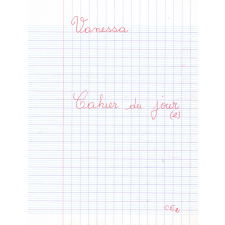 Vanessa
Cahier du jour
(2)